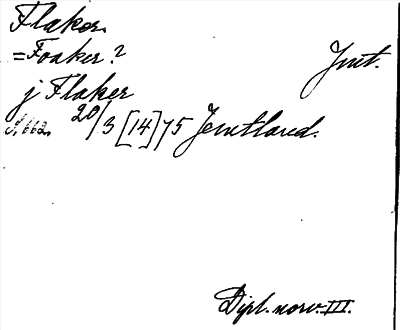 Flaker.
=Foaker?
Jmt.
j Flaker
S. 662. 20/3 [14]75 Jemtland.
Dipl. norv. III.